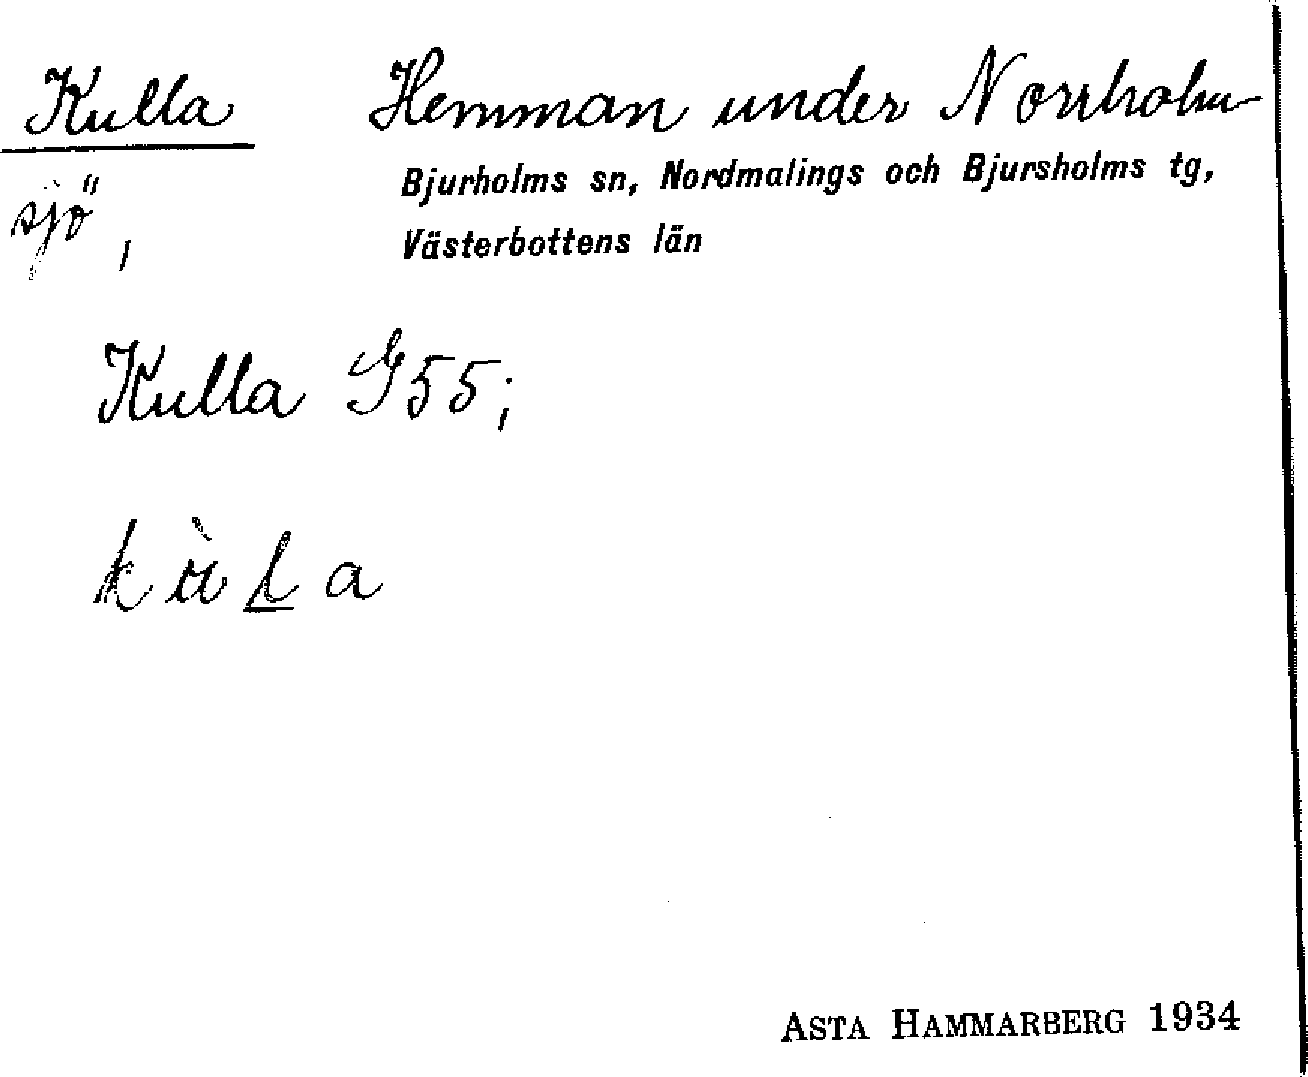 Kulla Hemman under Norrholm
sjö, Bjurholms sn, Nordmalings och Bjursholms tg,
Västerbottens län
Kulla G55;
kùḻa
ASTA HAMMARBERG 1934